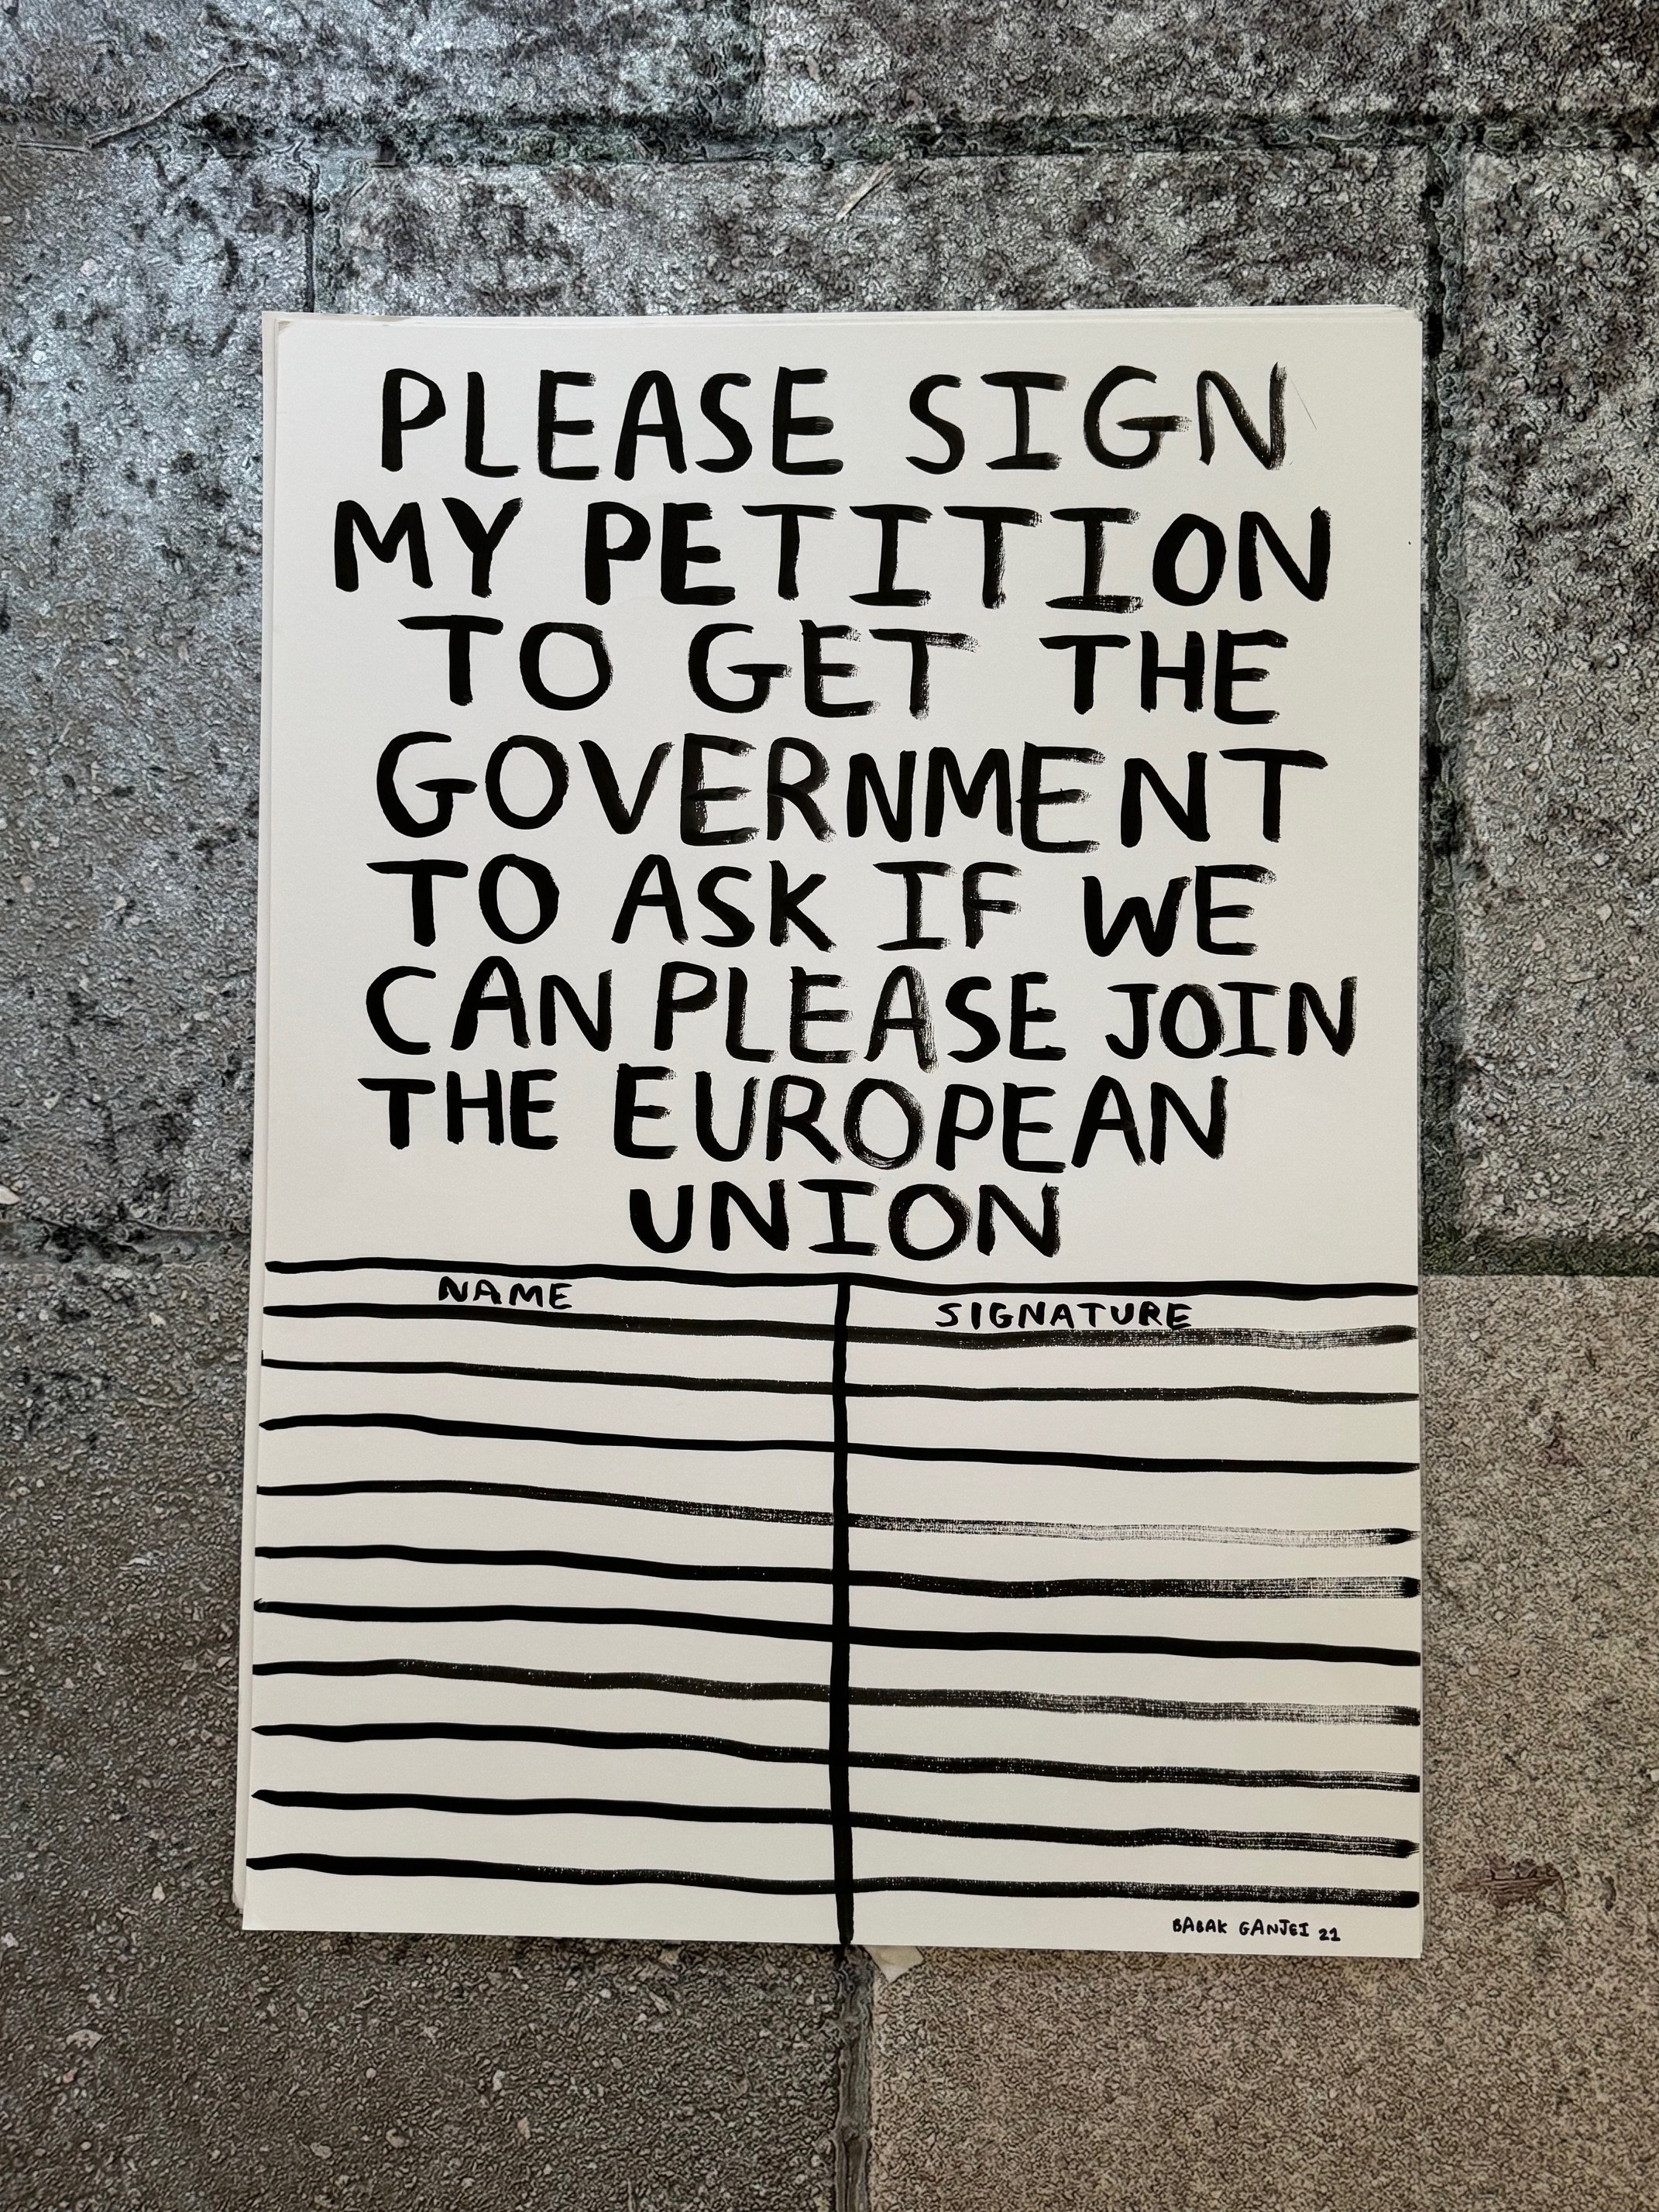 PLEASE SIGN
MY PETITION
TO GET THE
GOVERNMENT
TO ASK IF WE
CAN PLEASE JOIN
THE EUROPEAN
UNION
NAME
SIGNATURE
BABAK GANJEI 21